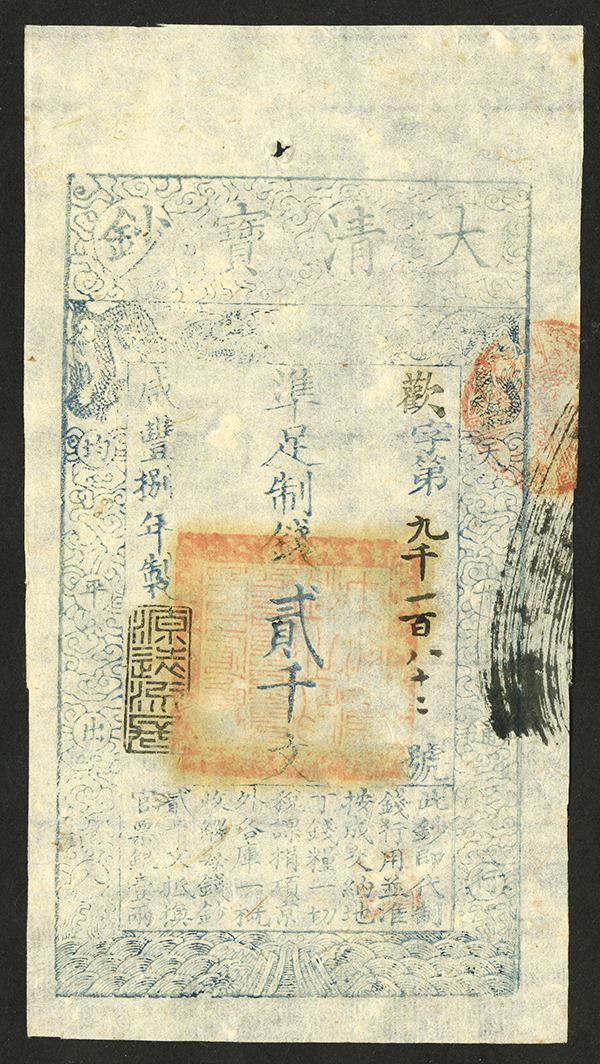 大清寶鈔
天
通
行
歡字第九千一百八十二號
準足制錢貳千文
咸豐捌年製
均
平
出
此鈔即代制
錢行用並准
按成交納地
丁錢糧一切
稅課捐項京
外各庫一概
收解每錢鈔
貳千文抵換
官票銀壹兩